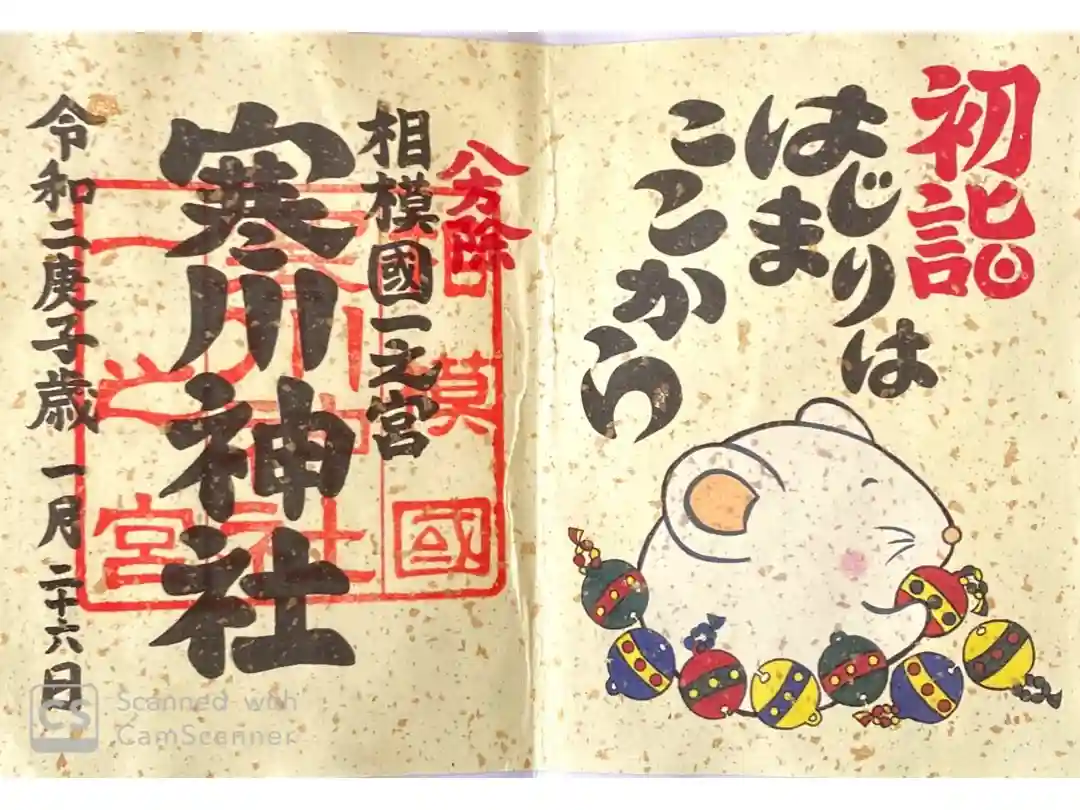 初詣
はじまりは
ここから
八方除
相模國一之宮
寒川神社
令和二庚子歳 一月 二十六日
相模國
寒川神社
一之宮
CS
Scanned with
CamScanner